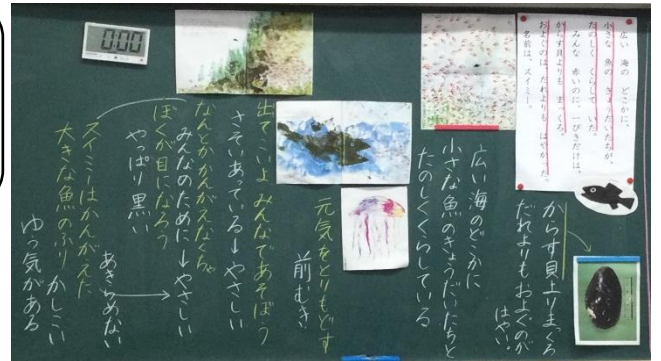 広い 海の どこかに、
小さな 魚の きょうだいたちが、
たのしく くらして いた。
みんな 赤いのに、一ぴきだけは、
からす貝よりも まっくろ。
およぐのは だれよりも はやかった。
名前は、スイミー。
からす貝よりまっくろ
だれよりもおよぐのが
はやい。
広い海のどこかに
小さな魚のきょうだいたちと
たのしくくらしている
元気をとりもどす
前むき
出てこいよ みんなであそぼう
さそいあっている→やさしい
なんとかかんがえなくちゃ
みんなのために→やさしい
ぼくが目になろう
やっぱり黒い
あきらめない
スイミーはかんがえた
大きな魚のふり かしこい
ゆっ気がある
0:00